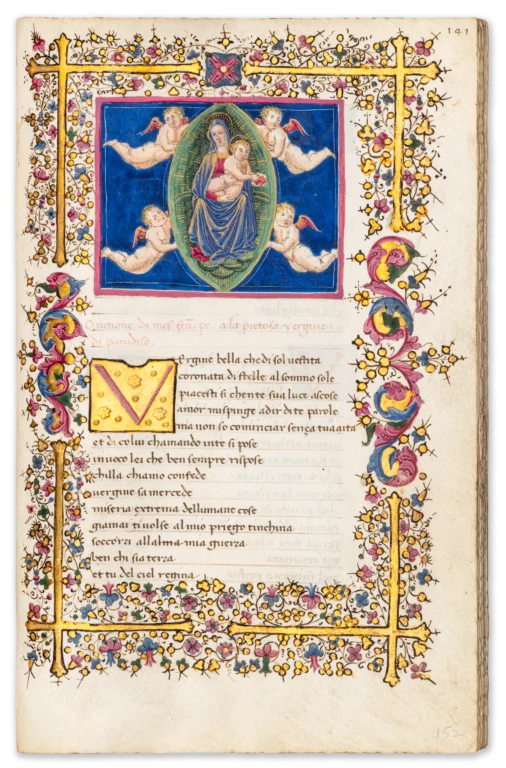 141
Oratione di mess fra. pe. a la pietosa vergine
di paradiso.
Vergine bella che di sol uestita
coronata di stelle al sommo sole
piacesti si chente sua luce ascose
amor mispinge adir dite parole
ma non so cominciar senza tua aita
et di colui chamando inte si pose
inuoco lei che ben sempre rispose
chi lla chiamo con fede
uergine sa mercede
miseria extrema dellumane cose
giamai ti uolse al mio priego tinchina
soccorri alla mia guerra
ben chi sia terra
et tu del ciel regina
152